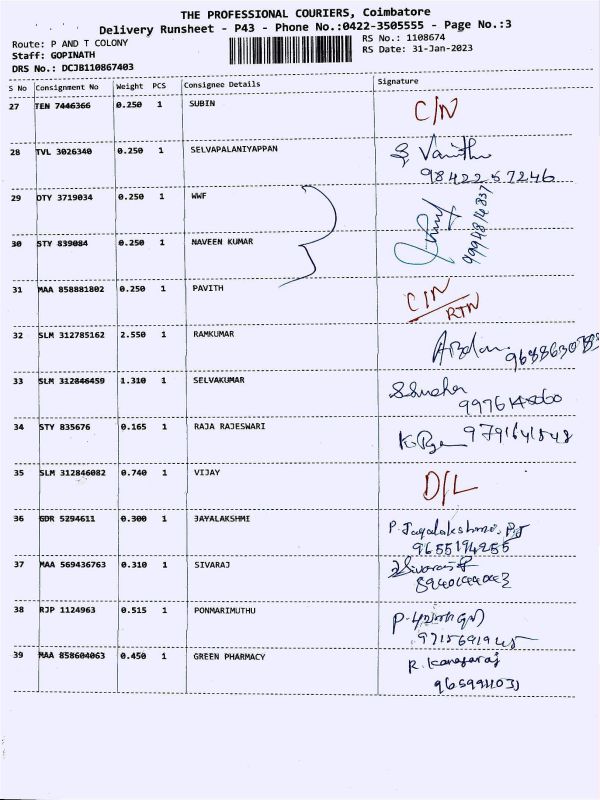 THE PROFESSIONAL COURIERS, Coimbatore
Delivery Runsheet - P43 - Phone No.:0422-3505555 - Page No.:3
Route: P AND T COLONY
RS No.: 1108674
Staff: GOPINATH
RS Date: 31-Jan-2023
DRS No.: DCJB110867403
S No Consignment No Weight PCS Consignee Details Signature
27 TEN 7446366 0.250 1 SUBIN C/N
28 TVL 3026340 0.250 1 SELVAPALANIYAPPAN
98422 57246
29 DTY 3719034 0.250 1 WWF
30 STY 839084 0.250 1 NAVEEN KUMAR
31 MAA 858881802 0.250 1 PAVITH C/N
RTN
32 SLM 312785162 2.550 1 RAMKUMAR
33 SLM 312846459 1.310 1 SELVAKUMAR
34 STY 835676 0.165 1 RAJA RAJESWARI 9791641548
35 SLM 312846082 0.740 1 VIJAY D/L
36 GDR 5294611 0.300 1 JAYALAKSHMI P. Jayalakshmi
9655194255
37 MAA 569436763 0.310 1 SIVARAJ Sivaraj
38 RJP 1124963 0.515 1 PONMARIMUTHU
39 MAA 858604063 0.450 1 GREEN PHARMACY R. Kanagaraj